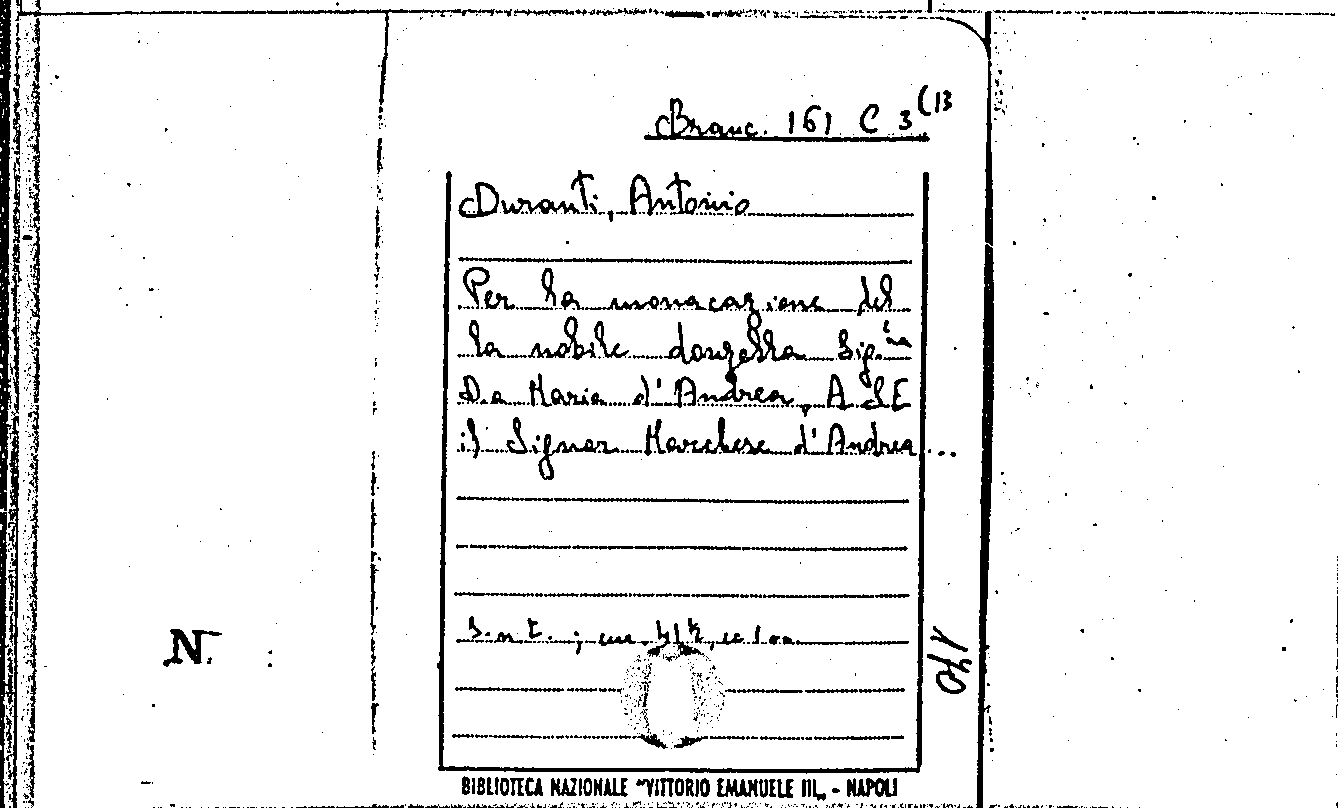 Branc. 161 C 3 (13
Duranti, Antonio
Per la monacazione del
la nobile donzella Sig.ra
D.a Maria d'Andrea, A S E
il Signor Marchese d'Andrea...
S.n.t. ; cm.
170
N.
BIBLIOTECA NAZIONALE "VITTORIO EMANUELE III„ - NAPOLI